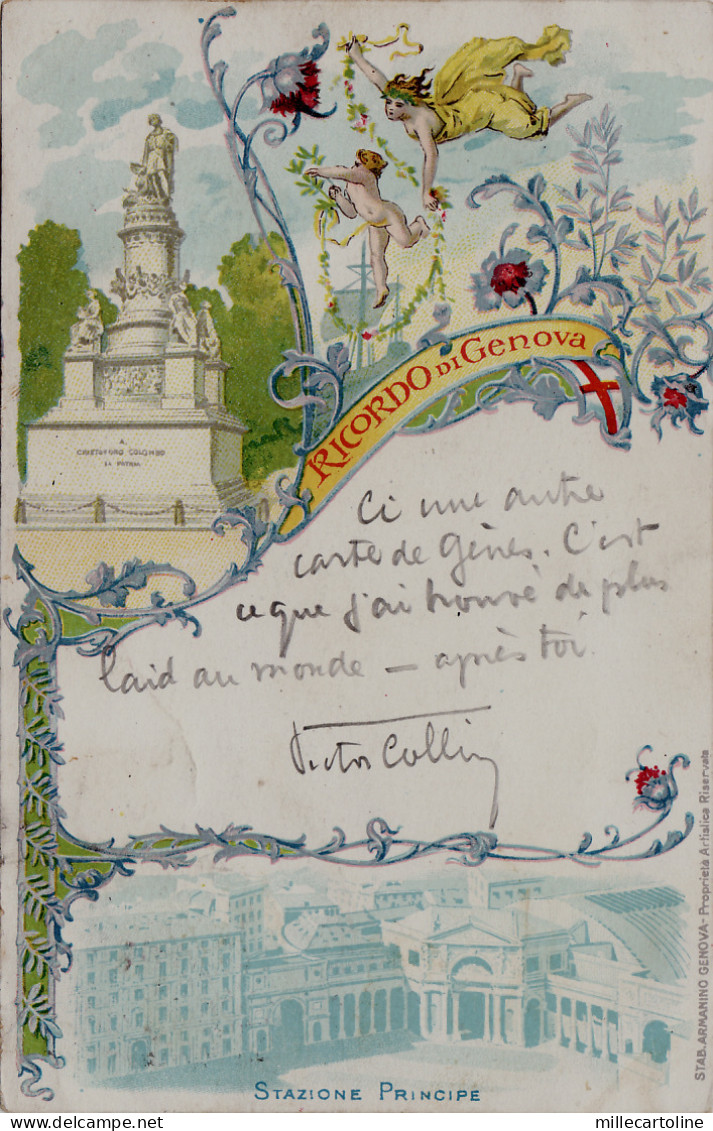 A
CRISTOFORO COLOMBO
LA PATRIA
RICORDO DI GENOVA
Ci une autre
carte de Gênes. C'est
ce que j'ai trouvé de plus
laid au monde — après toi.
Victor Collin
STAZIONE PRINCIPE
STAB. ARMANINO GENOVA - Proprietà Artistica Riservata
millecartoline